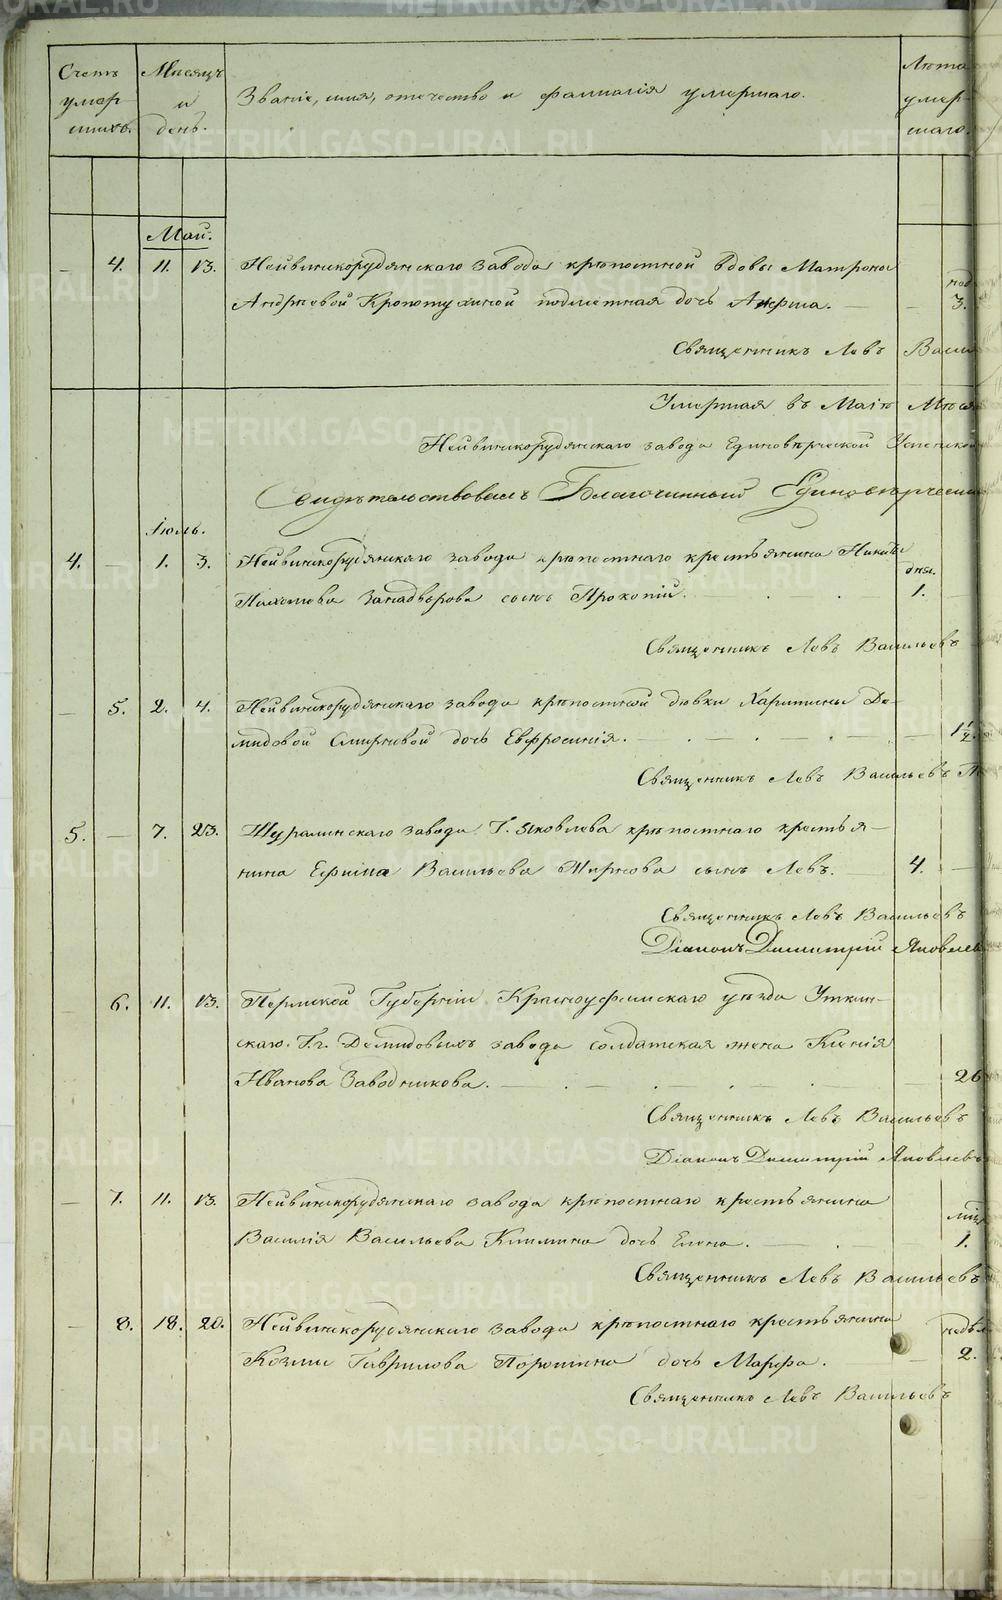 Счетъ умер- шихъ.
Мѣсяцъ и день.
Званіе, имя, отечество и фамилія умершаго.
Лѣта умер- шаго.
Май.
— 4. 11. 13. Нейвинскорудянскаго завода крѣпостной вдовы Матроны
нед.
Андреевой Кропотухиной подметная дочь Анфиса. — 3.
Священникъ Левъ Васи
Умершая въ Маіѣ Мѣся
Нейвинскорудянскаго завода Единовѣрческой Успенской
Свидѣтельствовалъ Благочинный Единовѣрчески
Іюль.
4. — 1. 3. Нейвинскорудянскаго завода крѣпостнаго крестьянина Никиты
дня.
Пахомова Западворова сынъ Прокопій. — 1.
Священникъ Левъ Васильевъ
— 5. 2. 4. Нейвинскорудянскаго завода крѣпостной дѣвки Харитины Де-
мидовой Смирновой дочь Евфросинія. — 1½
Священникъ Левъ Васильевъ
5. — 7. 23. Шуралинскаго завода Г. Яковлева крѣпостнаго крестья-
нина Ефима Васильева Жиркова сынъ Левъ. — 4.
Священникъ Левъ Васильевъ
Діаконъ Димитрій Яковлев
6. 11. 13. Пермской Губерніи Красноуфимскаго уѣзда Уткин-
скаго Г.г. Демидовыхъ завода солдатская жена Ксенія
Иванова Заводчикова. — 26
Священникъ Левъ Васильевъ
Діаконъ Димитрій Яковлевъ
— 7. 11. 13. Нейвинскорудянскаго завода крѣпостнаго крестьянина
Василія Васильева Климина дочь Елена. — 1.
Священникъ Левъ Васильевъ
— 8. 18. 20. Нейвинскорудянскаго завода крѣпостнаго крестьянина
недѣл
Козмы Гаврилова Порошина дочь Марфа. — 2.
Священникъ Левъ Васильевъ
METRIKI.GASO-URAL.RU